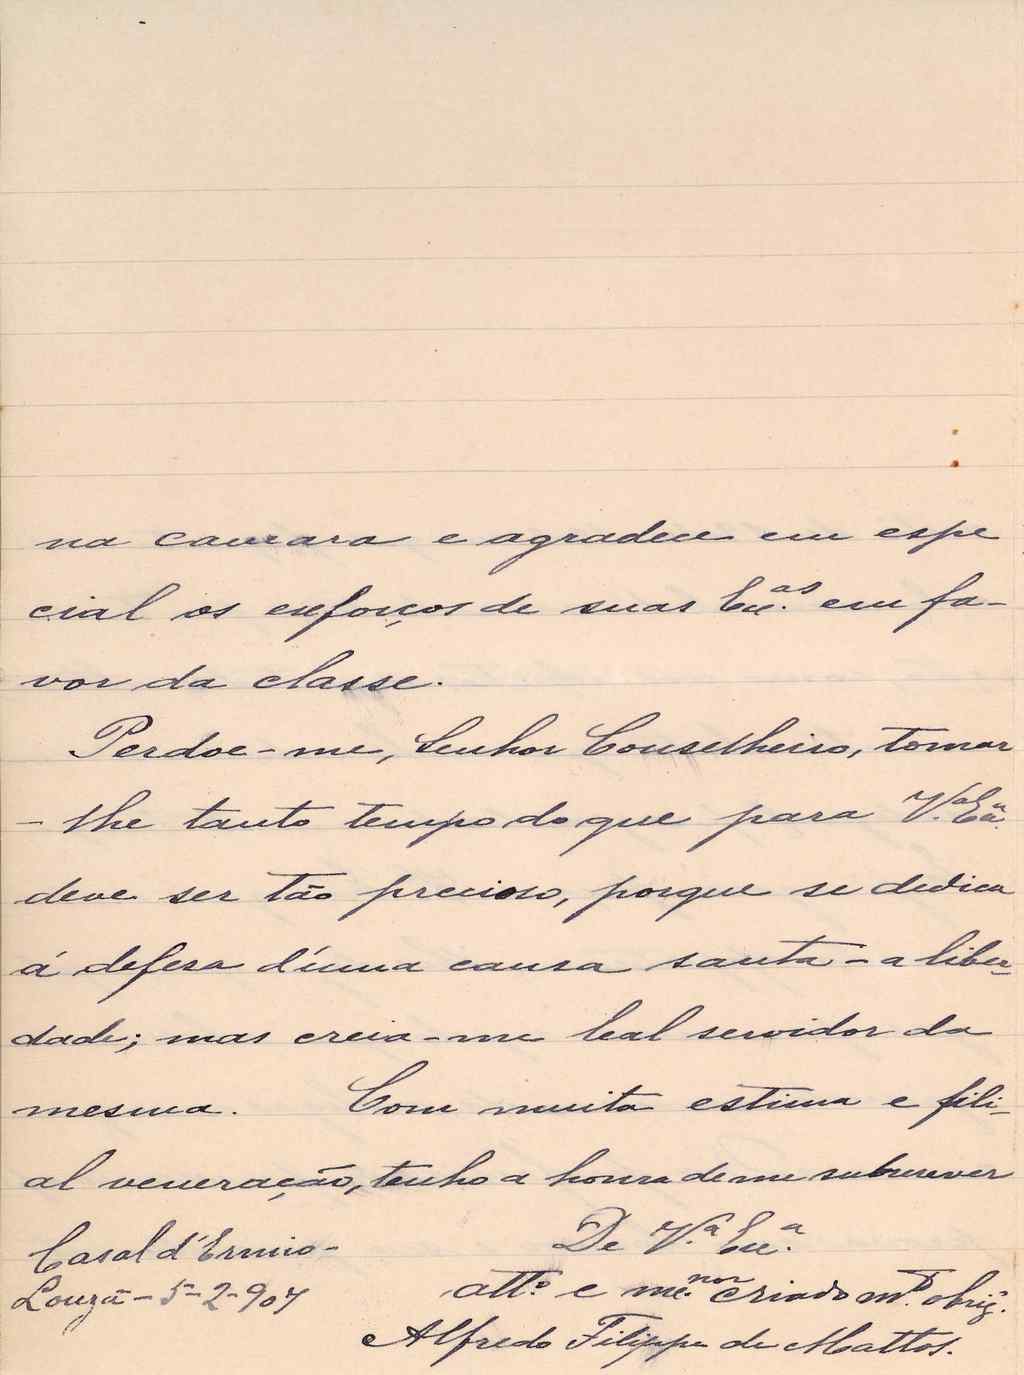 na camara e agradece em espe
cial os esforços de suas Ex.as em fa-
vor da classe.
Perdoe-me, Senhor Conselheiro, tomar
-lhe tanto tempo do que para V.a Ex.a
deve ser tão precioso, porque se dedica
á defesa d'uma causa santa - a liber-
dade; mas creia-me leal servidor da
mesma. Com muita estima e fili-
al veneração, tenho a honra de me subscrever
De V.a Ex.a
Casal d'Ermio-
Louzã - 5-2-907
att.o e me.nor criado m.to obrig.
Alfredo Filippe de Mattos.